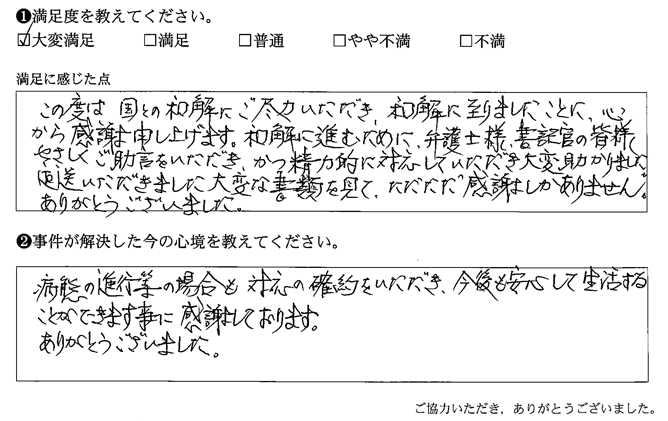 ❶満足度を教えてください。
☑大変満足 □満足 □普通 □やや不満 □不満
満足に感じた点
この度は 国との和解にご尽力いただき、和解に至りましたことに、心
から感謝申し上げます。和解に進むために、弁護士様、書記官の皆様
やさしくご助言をいただき、かつ精力的に対応していただき大変助かりました
返送いただきました大変な書類を見て、ただただ感謝しかありません。
ありがとうございました。
❷事件が解決した今の心境を教えてください。
病態の進行等の場合も対応の確約をいただき、今後も安心して生活する
ことができます事に感謝しております。
ありがとうございました。
ご協力いただき、ありがとうございました。